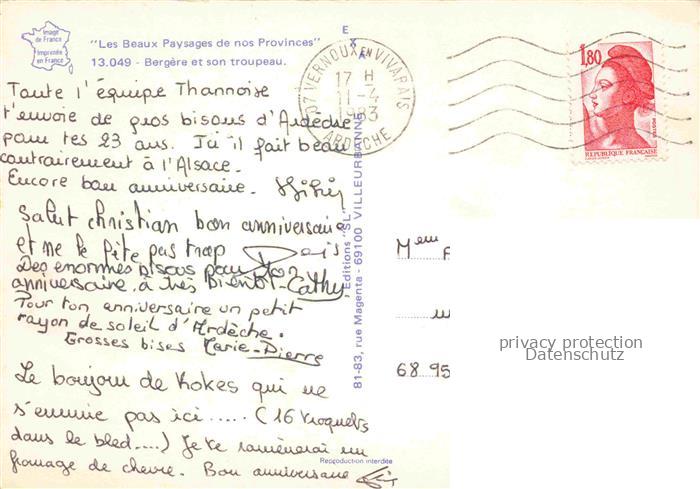 Image
de France
Imprimée
en France
"Les Beaux Paysages de nos Provinces"
13.049 - Bergère et son troupeau.
EXA
07 VERNOUX EN VIVARAIS
17 H
11-4
1983
ARDECHE
1,80
POSTES
REPUBLIQUE FRANÇAISE
Toute l'équipe Thannoise
t'envoie de gros bisous d'Ardèche
pour tes 23 ans. Ici il fait beau
contrairement à l'Alsace.
Encore bon anniversaire.
Salut christian bon anniversaire
et ne le fête pas trop
Des enormes bisous pour ton
anniversaire, à très Bientôt - Cathy
Pour ton anniversaire un petit
rayon de soleil d'Ardèche.
Grosses bises Marie-Pierre
Le boujou de Kokes qui ne
s'ennuie pas ici..... (16 troquets
dans le bled....) Je te ramènerai un
fromage de chèvre. Bon anniversaire
Editions "SL"
81-83, rue Magenta - 69100 VILLEURBANNE
Reproduction interdite
Mem
68 95
privacy protection
Datenschutz